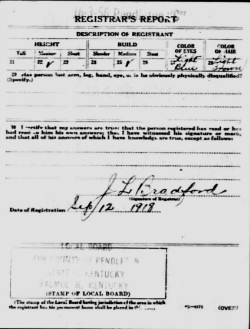 REGISTRAR'S REPORT
DESCRIPTION OF REGISTRANT
HEIGHT BUILD COLOR OF EYES COLOR OF HAIR
Tall Medium Short Slender Medium Stout
21 22 ✓ 23 24 25 ✓ 26 27 Light Blue 28 Light Brown
29 Has person lost arm, leg, hand, eye, or is he obviously physically disqualified?
(Specify.)
30 I certify that my answers are true; that the person registered has read or has
had read to him his own answers; that I have witnessed his signature or mark,
and that all of his answers of which I have knowledge are true, except as follows:
J. L. Bradford
(Signature of Registrar)
Date of Registration Sep/12 1918
LOCAL BOARD
COUNTY OF PENDLETON
STATE OF KENTUCKY
FALMOUTH, KENTUCKY
(STAMP OF LOCAL BOARD)
(The stamp of the Local Board having jurisdiction of the area in which
the registrant has his permanent home shall be placed in this
(OVER)